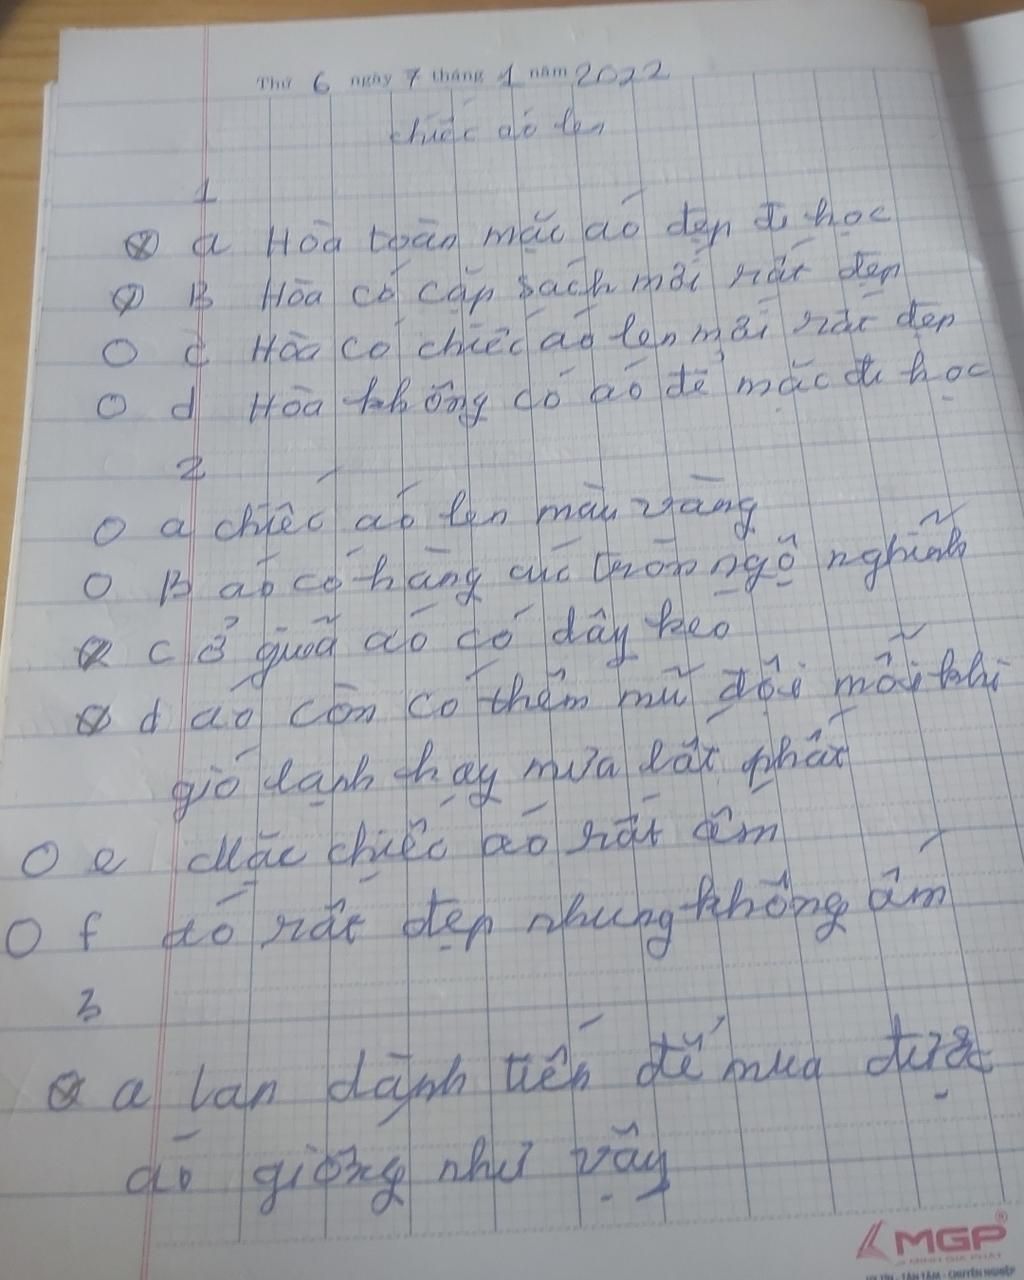 Thứ 6 ngày 7 tháng 1 năm 2022
chiếc áo len
1
a Hòa toàn mặc áo đẹp đi học
B Hòa có cặp sách mới rất đẹp
c Hòa có chiếc áo len mới rất đẹp
d Hòa không có áo để mặc đi học
2
a chiếc áo len màu vàng
B áo có hàng cúc tròn ngộ nghĩnh
c ở giữa áo có dây kéo
d áo còn có thêm mũ đội mỗi khi
gió lạnh hay mưa lất phất
e Mặc chiếc áo rất ấm
f áo rất đẹp nhưng không ấm
3
a lan dành tiền để mua được
áo giống như vậy
MGP